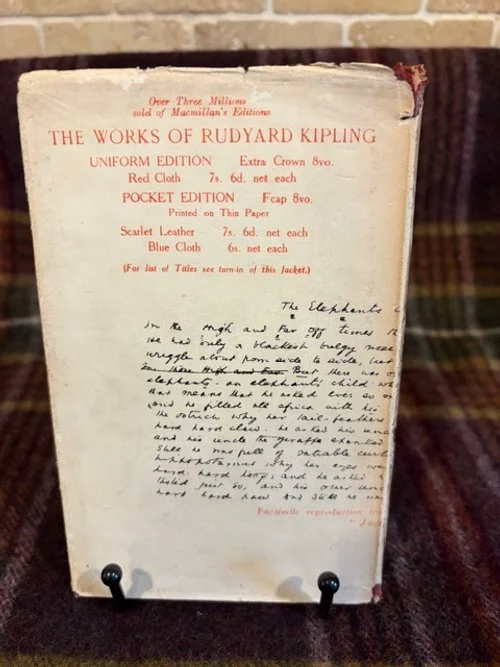 Over Three Millions
sold of Macmillan's Editions
THE WORKS OF RUDYARD KIPLING
UNIFORM EDITION Extra Crown 8vo.
Red Cloth 7s. 6d. net each
POCKET EDITION Fcap 8vo.
Printed on Thin Paper
Scarlet Leather 7s. 6d. net each
Blue Cloth 6s. net each
(For list of Titles see turn-in of this Jacket.)
The Elephants
In the High and Far Off times
He had only a blackish bulgy nose
wriggle about from side to side, but
But there was
elephants - an elephants child
that means that he asked ever so
and he filled all africa with his
the ostrich why her tail-feathers
hard hard claw. he asked his
and his uncle the giraffe spanked
still he was full of
hippopotamus why her eyes
hard hard hoof; and he asked
tasted just so, and his other
hard hard paw And still he
Facsimile reproduction